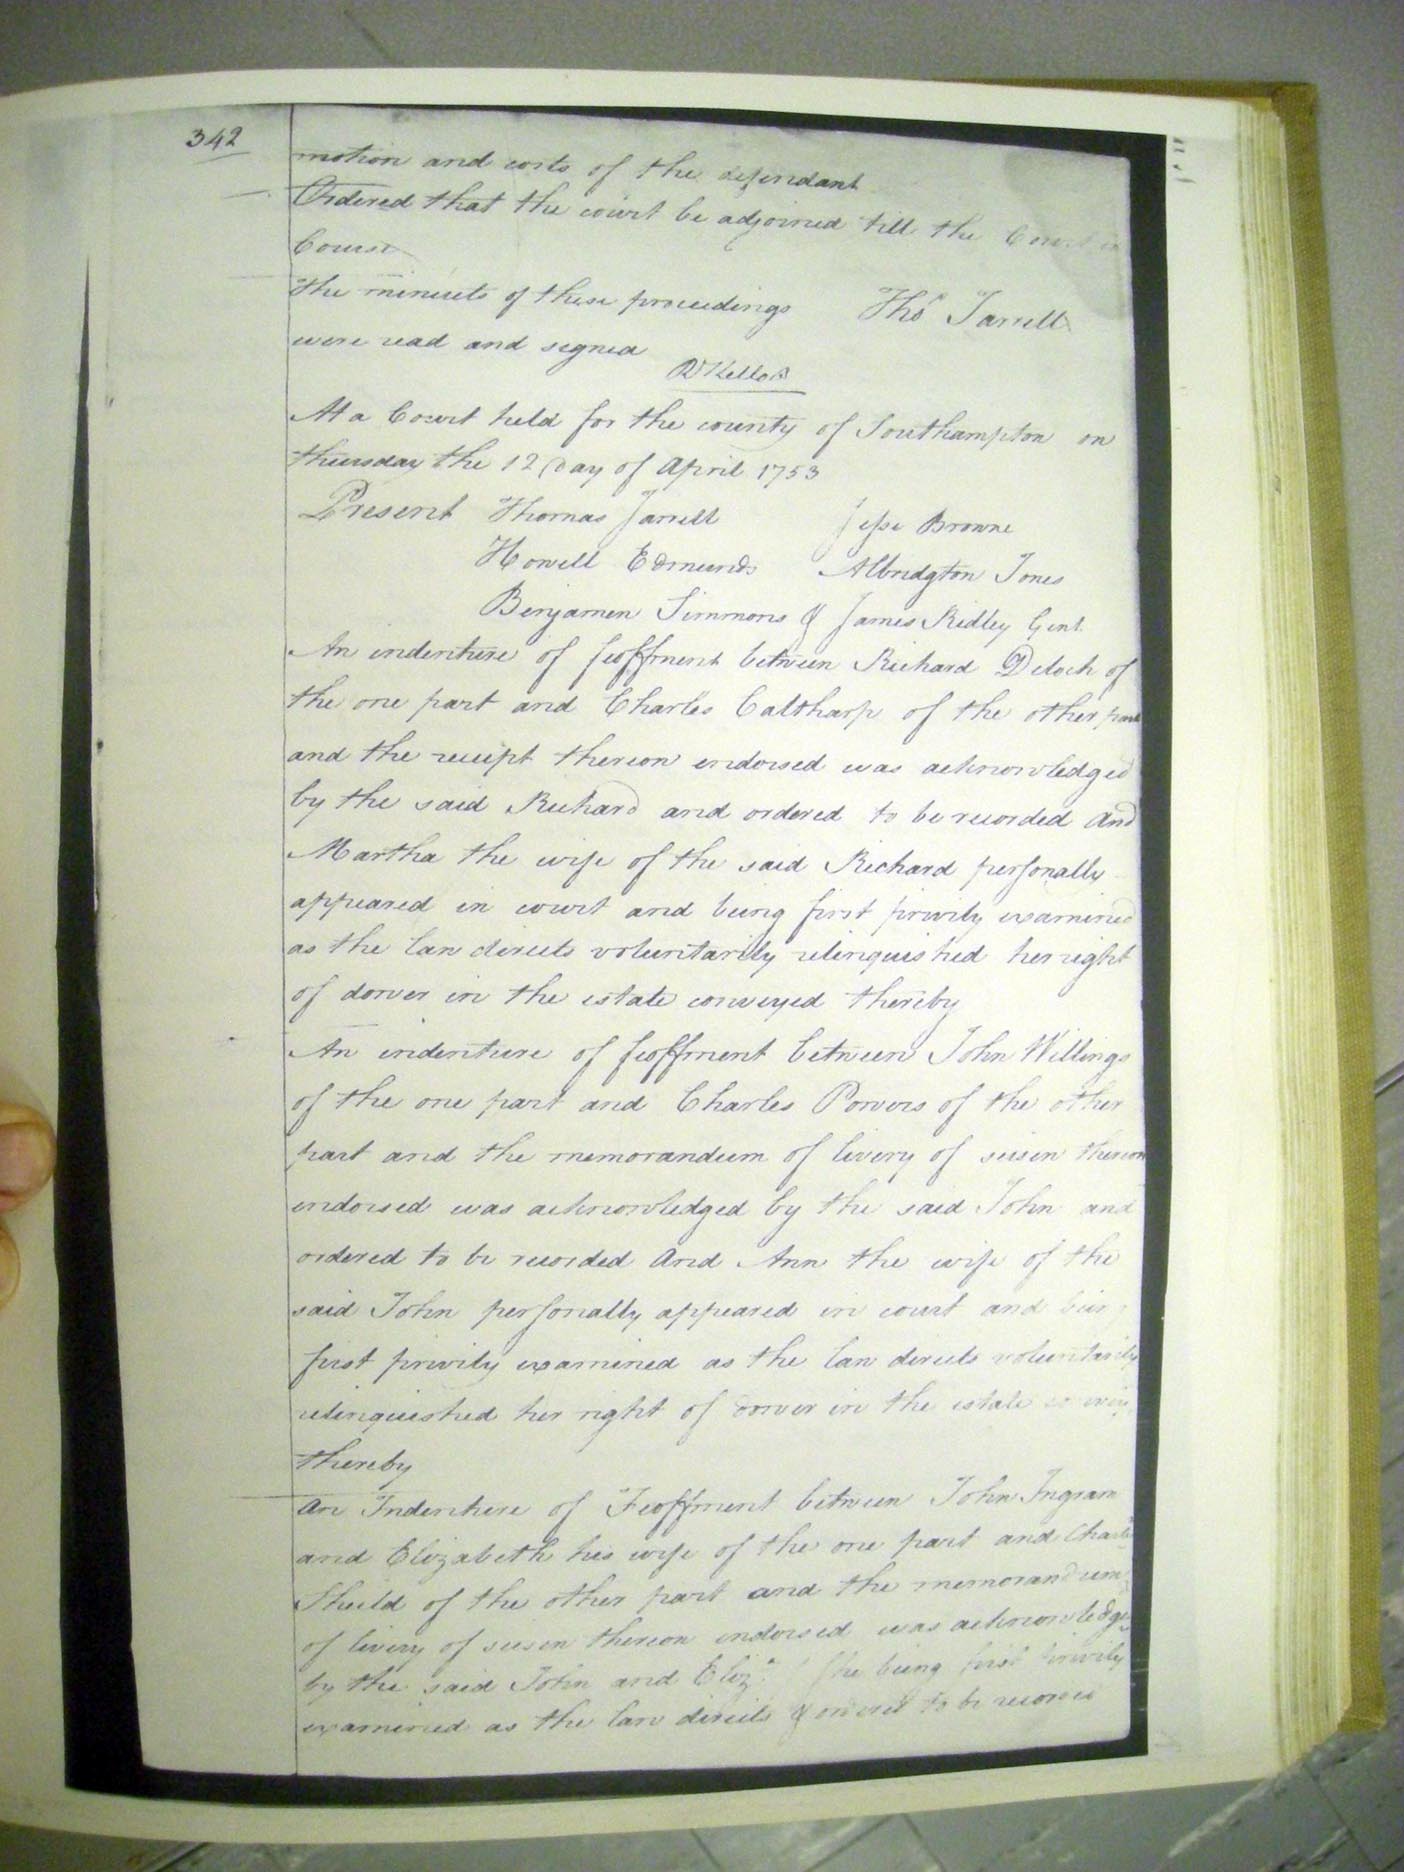 342
motion and costs of the defendant
Ordered that the court be adjoined till the Court in
Course
The minuets of these proceedings Thos Jarrell
were read and signed
At a Court held for the county of Southampton on
thursday the 12 Day of April 1753
Present Thomas Jarrell Jesse Browne
Howell Edmunds Albridgton Jones
Benjamen Simmons & James Ridley Gent.
An indenture of feoffment between Richard Deloch of
the one part and Charles Caltharp of the other part
and the receipt thereon endorsed was acknowledged
by the said Richard and ordered to be recorded And
Martha the wife of the said Richard personally
appeared in court and being first privily examined
as the law directs voluntarily relinquished her right
of dower in the estate conveyed thereby
An indenture of feoffment between John Willings
of the one part and Charles Powers of the other
part and the memorandum of livery of seisen thereon
endorsed was acknowledged by the said John and
ordered to be recorded And Ann the wife of the
said John personally appeared in court and being
first privily examined as the law directs voluntarily
relinquished her right of dower in the estate
thereby
An Indenture of Feoffment between John Ingram
and Elizabeth his wife of the one part and Charles
Sheild of the other part and the memorandum
of livery of seisen thereon endorsed was acknowledged
by the said John and Eliza. She being first privily
examined as the law directs & ordered to be recorded